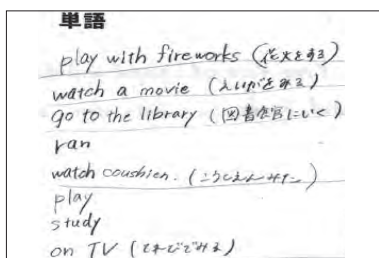 単語
play with fireworks (花火をする)
watch a movie (えいがをみる)
go to the library (図書館にいく)
ran
watch coushien. (こうしえんみた)
play
study
on TV (てれびでみる)